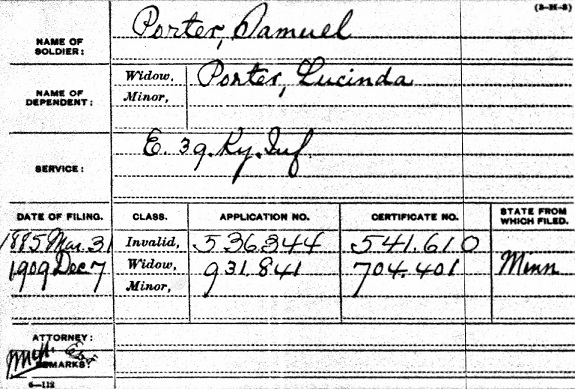 (3-H-3)
NAME OF SOLDIER: Porter, Samuel
NAME OF DEPENDENT: Widow, Porter, Lucinda
Minor,
SERVICE: E. 39. Ky. Inf.
DATE OF FILING. CLASS. APPLICATION NO. CERTIFICATE NO. STATE FROM WHICH FILED.
1885 Mar. 31 Invalid, 536344 541.610
1909 Dec 7 Widow, 931.841 704.401 Minn
Minor,
ATTORNEY:
REMARKS:
6-112